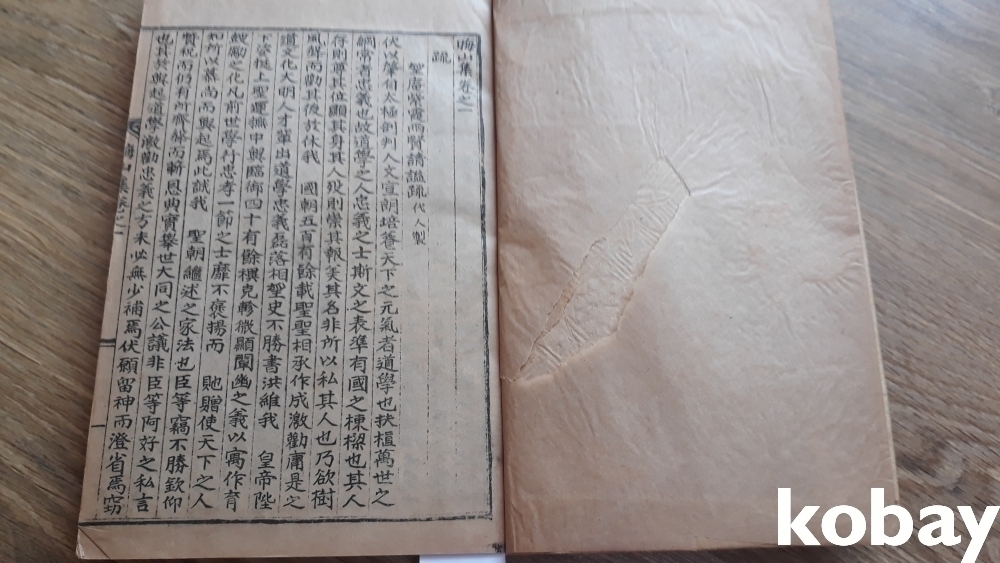 晦山集卷之一
疏
聖居紫霞兩賢請謚疏 代人製
伏以肇自太極剖判人文宣朗培養天下之元氣者道學也扶植萬世之
綱常者忠義也故道學之人忠義之士斯文之表準有國之棟樑也其人
存則尊其位顯其身其人歿則崇其報美其名非所以私其人也乃欲樹
風聲而勸其後於休我 國朝五百有餘載聖聖相承作成激勸庸是之
道文化大明人才輩出道學忠義磊落相望史不勝書洪維我 皇帝陛
下姿挺上聖運撫中興臨御四十有餘禩克軫微顯闡幽之義以寓作育
鼓勵之化凡前世學行忠孝一節之士靡不褒揚而 貤贈使天下之人
知所以慕尚而興起焉此誠我 聖朝繼述之家法也臣等竊不勝欽仰
贊祝而仍有所齎籲而蘄恩典實擧世大同之公議非臣等阿好之私言
也其於興起道學激勸忠義之方未必無少補焉伏願留神而澄省焉竊
晦山集卷之一
kobay